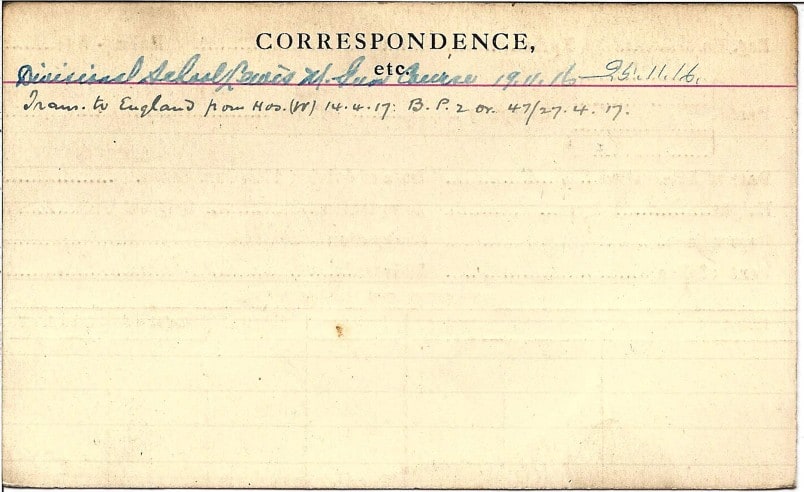 CORRESPONDENCE,
etc.
Divisional School Lewis M. Gun Course 19.11.16 - 25.11.16.
Trans. to England from Hos. (W) 14.4.17. B.P. 2 or. 47/27.4.17.